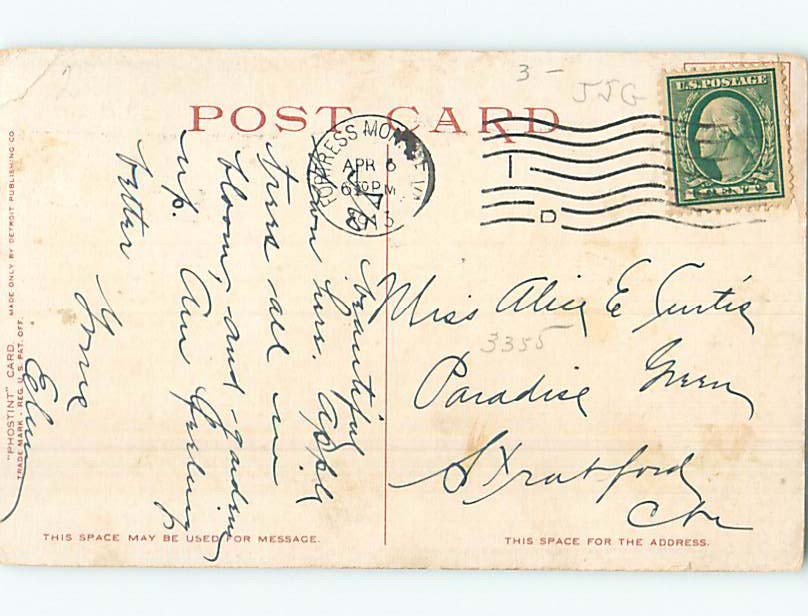 3 - JJG
POST CARD
U.S. POSTAGE
1 CENT 1
FORTRESS MONROE VA.
APR 6
6 30 PM
1913
1
D
beautiful
down here. Apple
trees all in
bloom, and gardens
up. Am feeling
better
Yours
Miss Alice E Curtis
3355
Paradise Green
Stratford
Conn
"PHOSTINT" CARD MADE ONLY BY DETROIT PUBLISHING CO.
TRADE MARK - REG. U.S. PAT. OFF.
THIS SPACE MAY BE USED FOR MESSAGE.
THIS SPACE FOR THE ADDRESS.